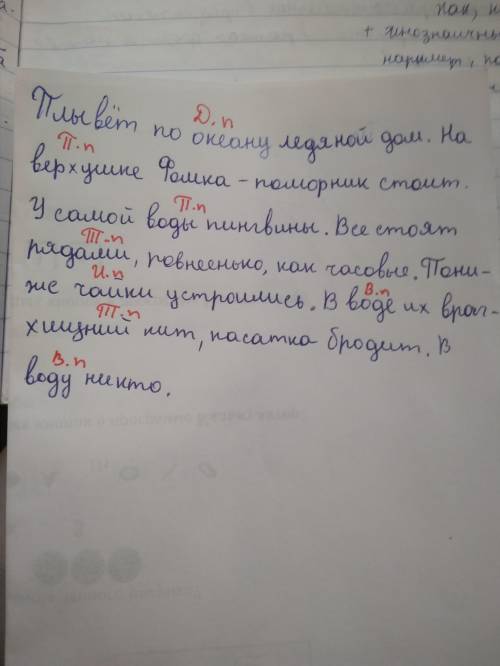 как, н
+ Инозначны
например, по
Плывёт по океану ледяной дом. На
Д.п
верхушке Фомка - поморник стоит.
П.п
У самой воды пингвины. Все стоят
П.п
рядами, ровнеенько, как часовые. Пони-
Т.п
же чайки устроились. В воде их враг-
И.п В.п
хищний кит, касатка бродит. В
Т.п
воду никто.
В.п